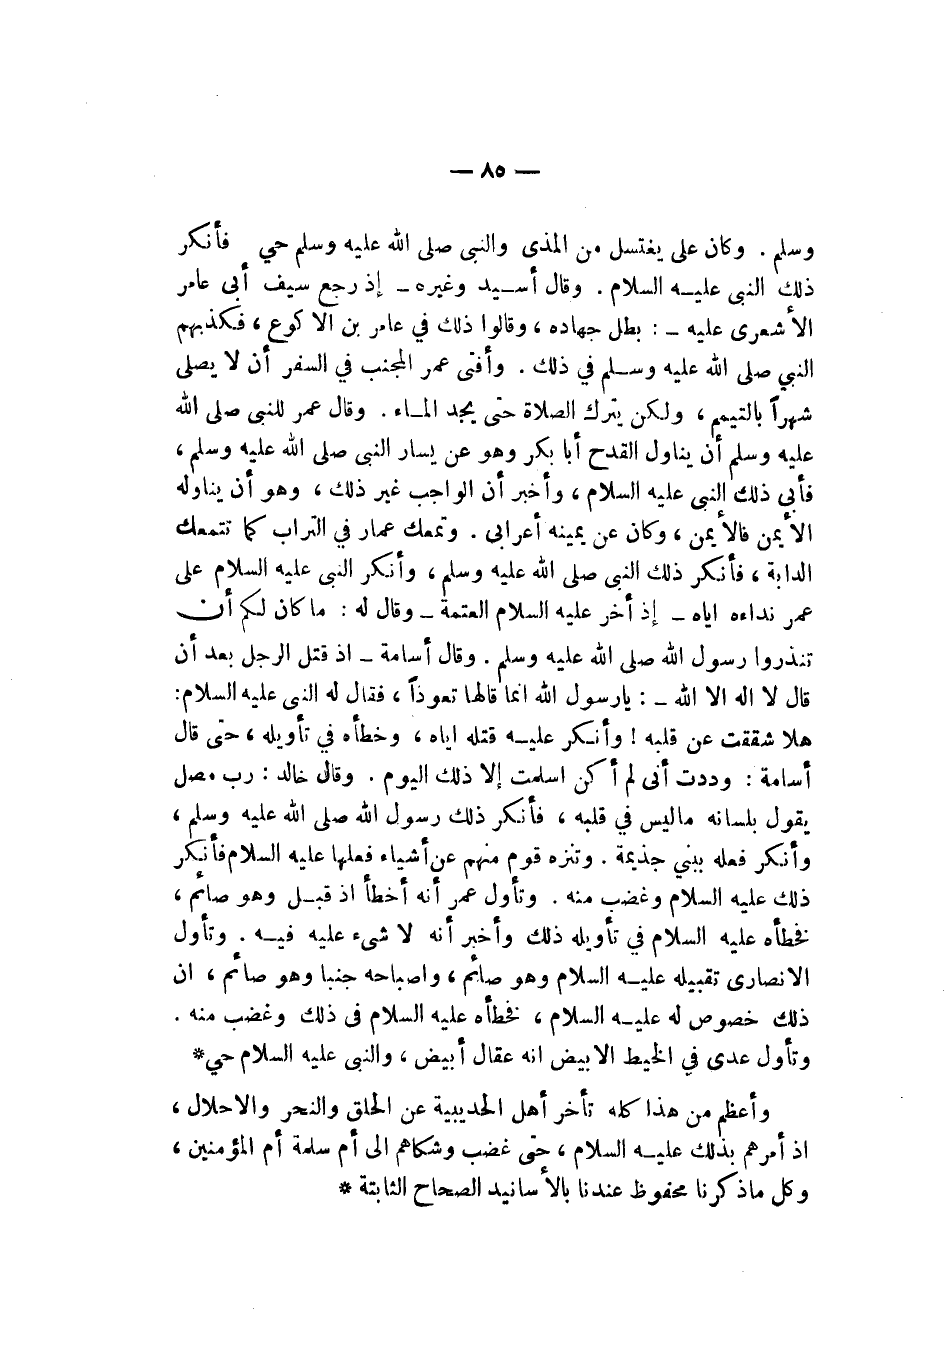 — ٨٥ —
وسلم . وكان على يغتسل من المذى والنبى صلى الله عليه وسلم حي فأنكر
ذلك النبى عليه السلام . وقال أسيد وغيره ـ إذ رجع سيف أبى عامر
الأشعرى عليه ـ : بطل جهاده ، وقالوا ذلك في عامر بن الاكوع ، فكذبهم
النبي صلى الله عليه وسلم في ذلك . وأفتى عمر المجنب في السفر أن لا يصلى
شهراً بالتيمم ، ولكن يترك الصلاة حتى يجد الماء . وقال عمر للنبى صلى الله
عليه وسلم أن يناول القدح أبا بكر وهو عن يسار النبى صلى الله عليه وسلم ،
فأبى ذلك النبى عليه السلام ، وأخبر أن الواجب غير ذلك ، وهو أن يناوله
الأيمن فالأيمن ، وكان عن يمينه أعرابى . وتمعك عمار في التراب كما تتمعك
الدابة ، فأنكر ذلك النبى صلى الله عليه وسلم ، وأنكر النبى عليه السلام على
عمر نداءه اياه ـ إذ أخر عليه السلام العتمة ـ وقال له : ما كان لكم أن
تنذروا رسول الله صلى الله عليه وسلم . وقال أسامة ـ اذ قتل الرجل بعد أن
قال لا اله الا الله ـ : يارسول الله انما قالها تعوذاً ، فقال له النبى عليه السلام :
هلا شققت عن قلبه ! وأنكر عليه قتله اياه ، وخطأه في تأويله ، حتى قال
أسامة : وددت أنى لم أكن اسلمت إلا ذلك اليوم . وقال خالد : رب مصل
يقول بلسانه ماليس في قلبه ، فأنكر ذلك رسول الله صلى الله عليه وسلم ،
وأنكر فعله ببني جذيمة . وتنزه قوم منهم عن أشياء فعلها عليه السلام فأنكر
ذلك عليه السلام وغضب منه . وتأول عمر أنه أخطأ اذ قبل وهو صائم ،
فخطأه عليه السلام في تأويله ذلك وأخبر أنه لا شىء عليه فيه . وتأول
الانصارى تقبيله عليه السلام وهو صائم ، واصباحه جنبا وهو صائم ، ان
ذلك خصوص له عليه السلام ، فخطأه عليه السلام فى ذلك وغضب منه .
وتأول عدى في الخيط الابيض انه عقال أبيض ، والنبى عليه السلام حي *
وأعظم من هذا كله تأخر أهل الحديبية عن الحلق والنحر والاحلال ،
اذ أمرهم بذلك عليه السلام ، حتى غضب وشكاهم الى أم سلمة أم المؤمنين ،
وكل ماذكرنا محفوظ عندنا بالأسانيد الصحاح الثابتة *